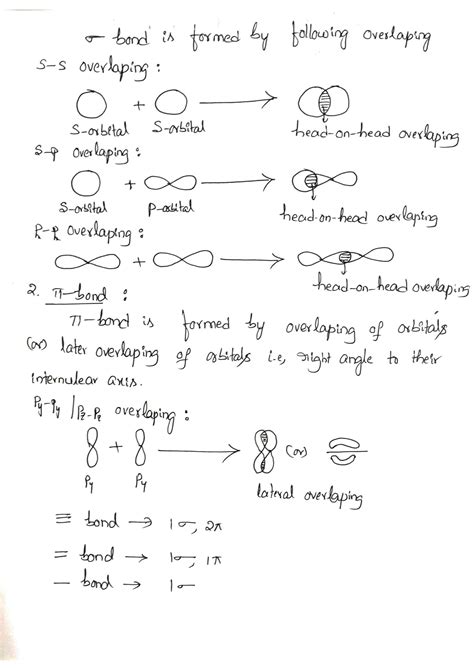 σ bond is formed by following overlaping
S-S overlaping :
+
S-orbital S-orbital head-on-head overlaping
S-p overlaping :
+
S-orbital P-orbital head-on-head overlaping
P-P overlaping :
+
head-on-head overlaping
2. π-bond :
π-bond is formed by overlaping of orbitals
(or) later overlaping of orbitals i.e, right angle to their
internulear axis.
Py-Py / Pz-Pz overlaping :
+ (or)
Py Py lateral overlaping
≡ bond → 1σ, 2π
= bond → 1σ, 1π
− bond → 1σ